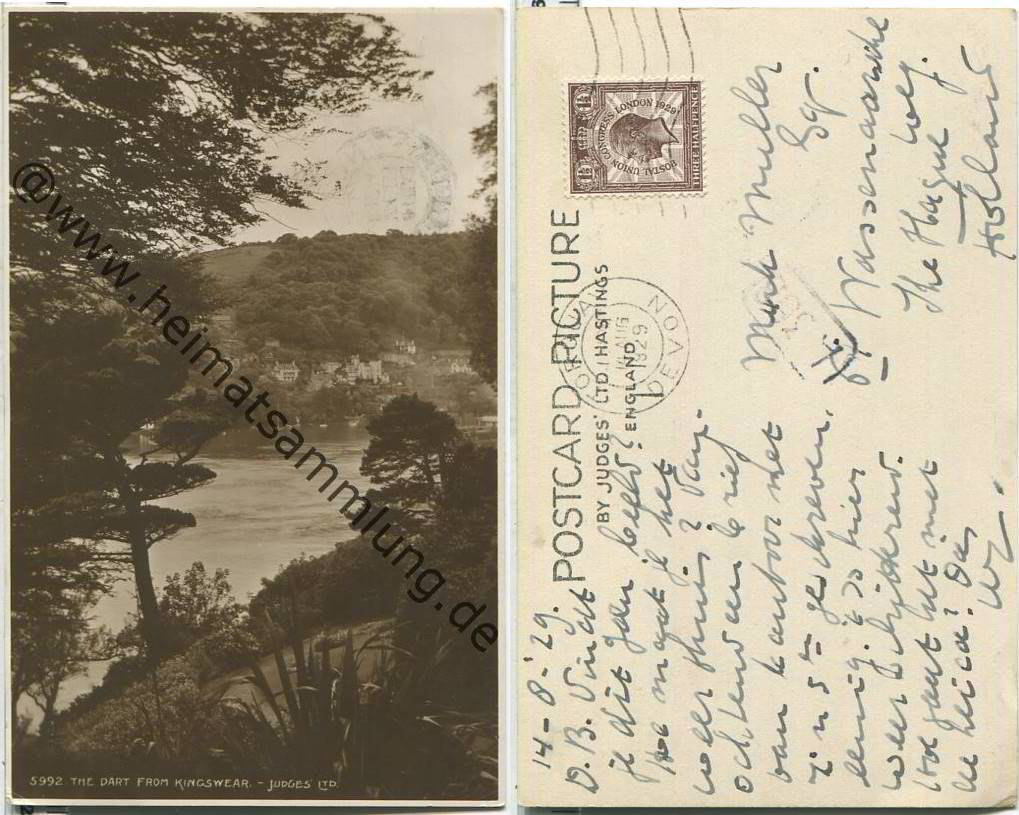 @www.heimatsammlung.de
5992 THE DART FROM KINGSWEAR. - JUDGES LTD.
POSTAL UNION CONGRESS LONDON 1929
THREE HALFPENCE
POSTCARD PICTURE
BY JUDGES' LTD HASTINGS
ENGLAND
AUG
1929
DEVON
14-8-'29.
D.B. Vindt
je dit geen beeld?
Hoe maak je het
weer thuis? Van-
ochtend een brief
van kantoor met
geschreven.
eenig. 't Is hier
weer
Hoe gaat het met
de heica?
Muller
Esq.
Wassenaarsche
weg.
The Hague
Holland